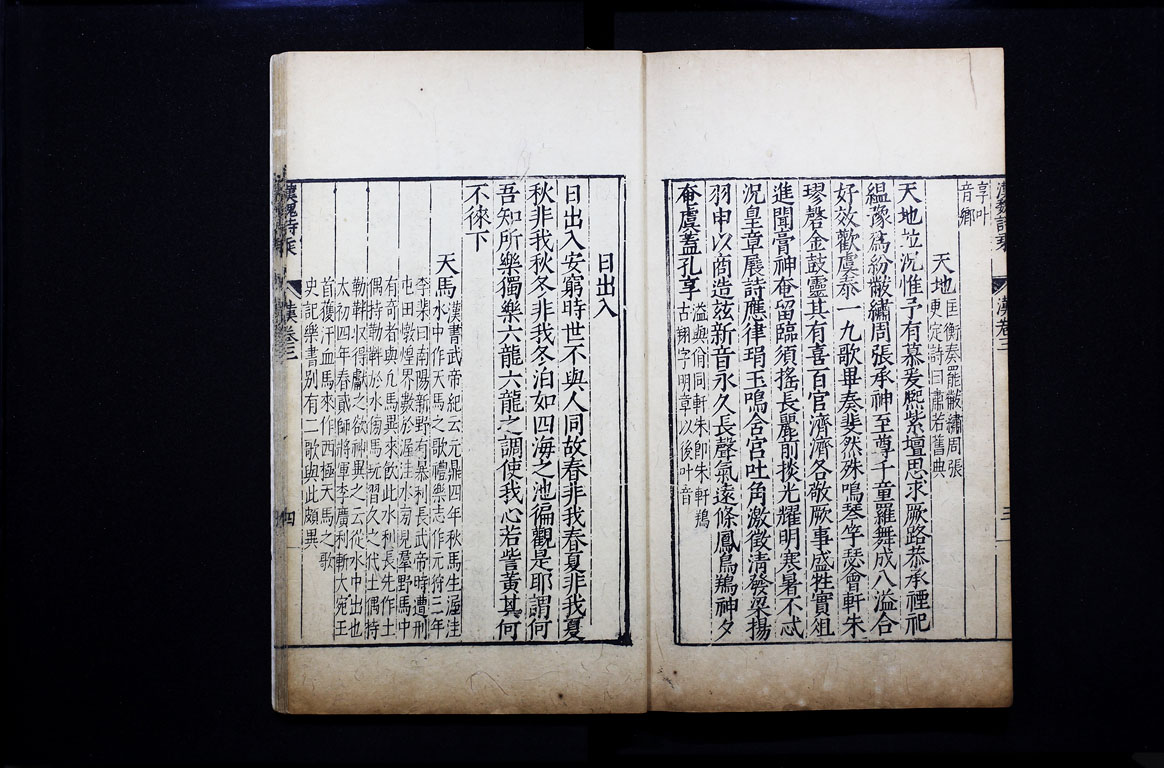 漢魏詩乘
漢卷三
三
享叶
音鄉
天地
匡衡奏罷黼繡周張
更定詩曰肅若舊典
天地竝况惟予有慕爰熙紫壇思求厥路恭承禋祀
縕豫爲紛黼繡周張承神至尊千童羅舞成八溢合
好效歡虞泰一九歌畢奏斐然殊鳴琴竽瑟會軒朱
璆磬金鼓靈其有喜百官濟濟各敬厥事盛牲實俎
進聞膏神奄留臨須搖長麗前掞光耀明寒暑不忒
況皇章展詩應律鋗玉鳴含宮吐角激徵清發梁揚
羽申以商造茲新音永久長聲氣遠條鳳鳥鶤神夕
奄虞蓋孔享
溢與佾同軒朱卽朱軒鶤
古翔字明章以後叶音
日出入
日出入安窮時世不與人同故春非我春夏非我夏
秋非我秋冬非我冬泊如四海之池徧觀是耶謂何
吾知所樂獨樂六龍六龍之調使我心若訾黃其何
不徠下
天馬
漢書武帝紀云元鼎四年秋馬生渥洼
水中作天馬之歌禮樂志作元狩三年
李斐曰南陽新野有暴利長武帝時遭刑
屯田燉煌界數於渥洼水旁見羣野馬中
有奇者與凡馬異來飲此水利長先作土
偶持勒靽於水傍馬玩習久之代土偶持
勒靽收得獻之欲神異之云從水中出也
太初四年春貳師將軍李廣利斬大宛王
首獲汗血馬來作西極天馬之歌
史記樂書別有二歌與此頗異
漢魏詩乘
漢卷三
四